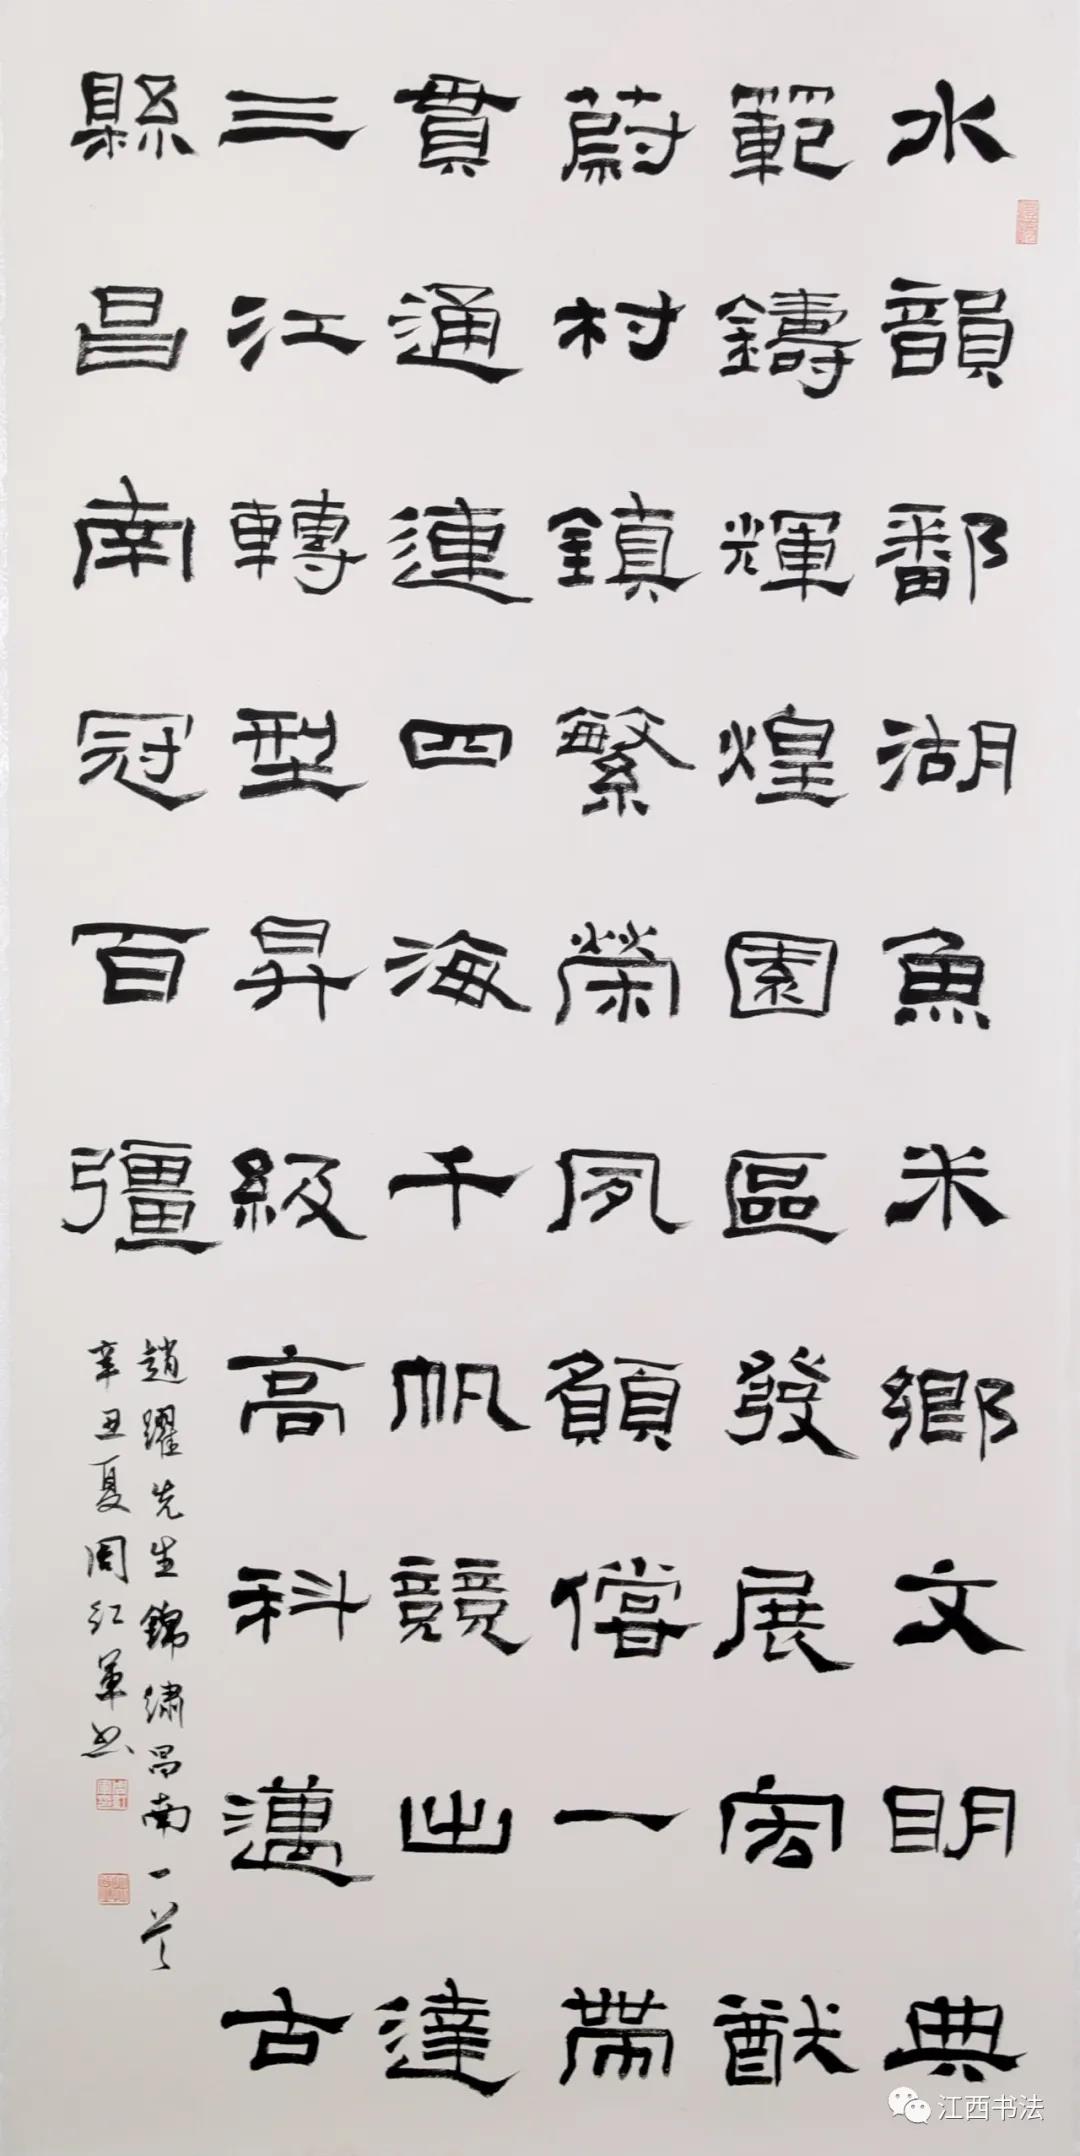 水韻鄱湖魚米鄉文明典
範鑄輝煌園區發展宏猷
蔚村鎮繁榮夙願償一帶
貫通連四海千帆競出達
三江轉型昇級高科邁古
縣昌南冠百疆
趙躍先生錦繡昌南一首
辛丑夏周紅軍書
江西书法